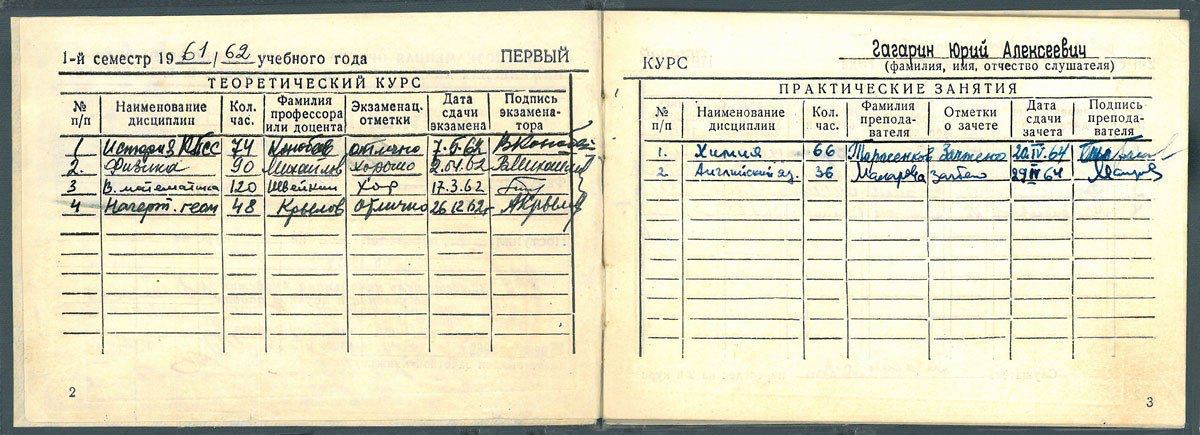 1-й семестр 1961/62 учебного года ПЕРВЫЙ
ТЕОРЕТИЧЕСКИЙ КУРС
№ п/п Наименование дисциплин Кол. час. Фамилия профессора или доцента Экзаменац. отметки Дата сдачи экзамена Подпись экзаменатора
1 История КПСС 74 отлично
2. Физика 90 Михайлов хорошо
3 В. математика 120 Швейкин хор 17.3.62
4 Начерт. геом 48 Крылов отлично 26 12 62г АКрылов
2
КУРС Гагарин Юрий Алексеевич
(фамилия, имя, отчество слушателя)
ПРАКТИЧЕСКИЕ ЗАНЯТИЯ
№ п/п Наименование дисциплин Кол. час. Фамилия преподавателя Отметки о зачете Дата сдачи зачета Подпись преподавателя
1. Химия 66 Тарасенков Зачтено 20 IV.64
2. Английский яз. 36 Макарова Зачтено
3